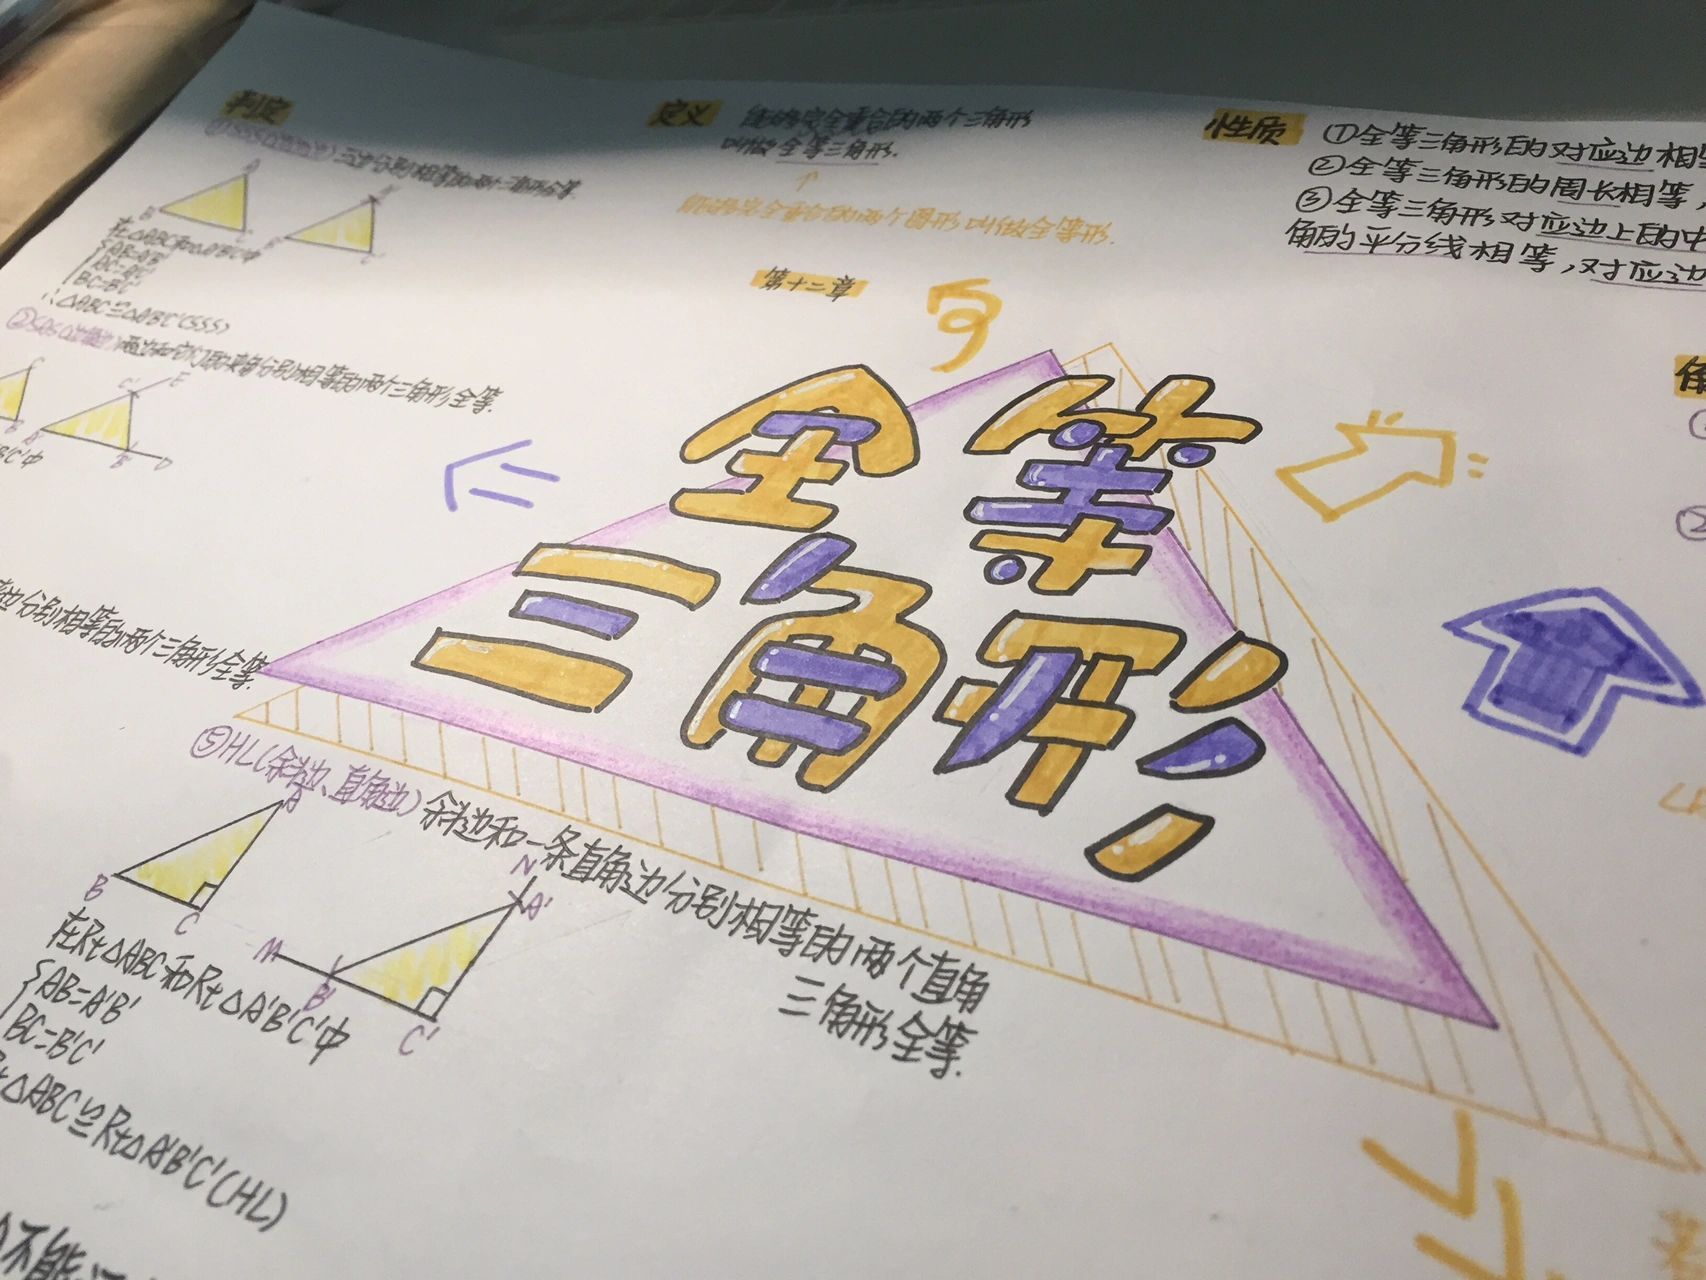 判定
①SSS(边边边)三边分别相等的两个三角形全等.
A
B
C
A'
B'
C'
在△ABC和△A'B'C'中
AB=A'B'
AC=A'C'
BC=B'C'
∴△ABC≌△A'B'C'(SSS)
②SAS(边角边)两边和它们的夹角分别相等的两个三角形全等.
C
B
A'
C'
E
B'
D
B'C'中
边分别相等的两个三角形全等.
定义
能够完全重合的两个三角形
叫做全等三角形.
能够完全重合的两个图形叫做全等形.
第十二章
全等
三角形
性质
①全等三角形的对应边相等
②全等三角形的周长相等,
③全等三角形对应边上的中
角的平分线相等,对应边
角
②
⑤HL(斜边、直角边)斜边和一条直角边分别相等的两个直角
三角形全等.
A
B
C
N
A'
M
B'
C'
在Rt△ABC和Rt△A'B'C'中
AB=A'B'
BC=B'C'
t△ABC≌Rt△A'B'C'(HL)
不能